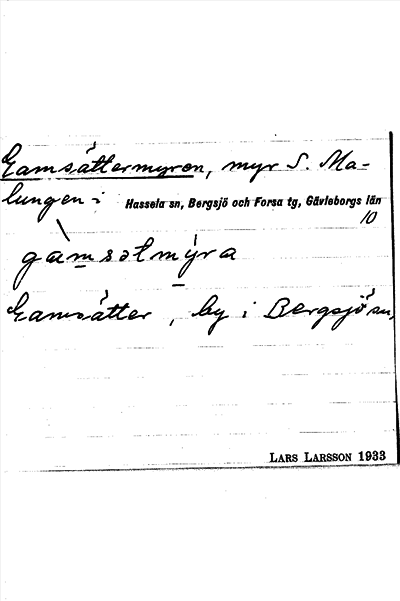 Gamsättermyren, myr S. Ma-
lungen i Hassela sn, Bergsjö och Forsa tg, Gävleborgs län
10
gàmsətmýra
Gamsätter, by i Bergsjö sn,
LARS LARSSON 1933